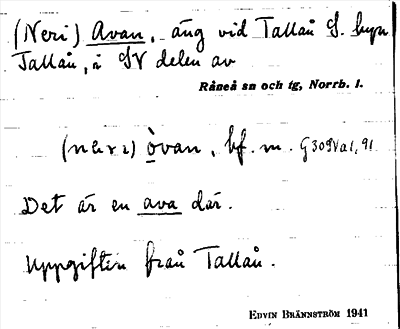 (Neri) Avan, äng vid Tallån S. byn
Tallån, i SV delen av
Råneå sn och tg, Norrb. l.
òvan, bf. m.
Det är en ava där.
Uppgiften från Tallån.
EDVIN BRÄNNSTRÖM 1941